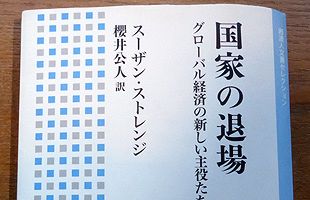 国家の退場
グローバル経済の新しい主役たち
スーザン・ストレンジ
櫻井公人 訳